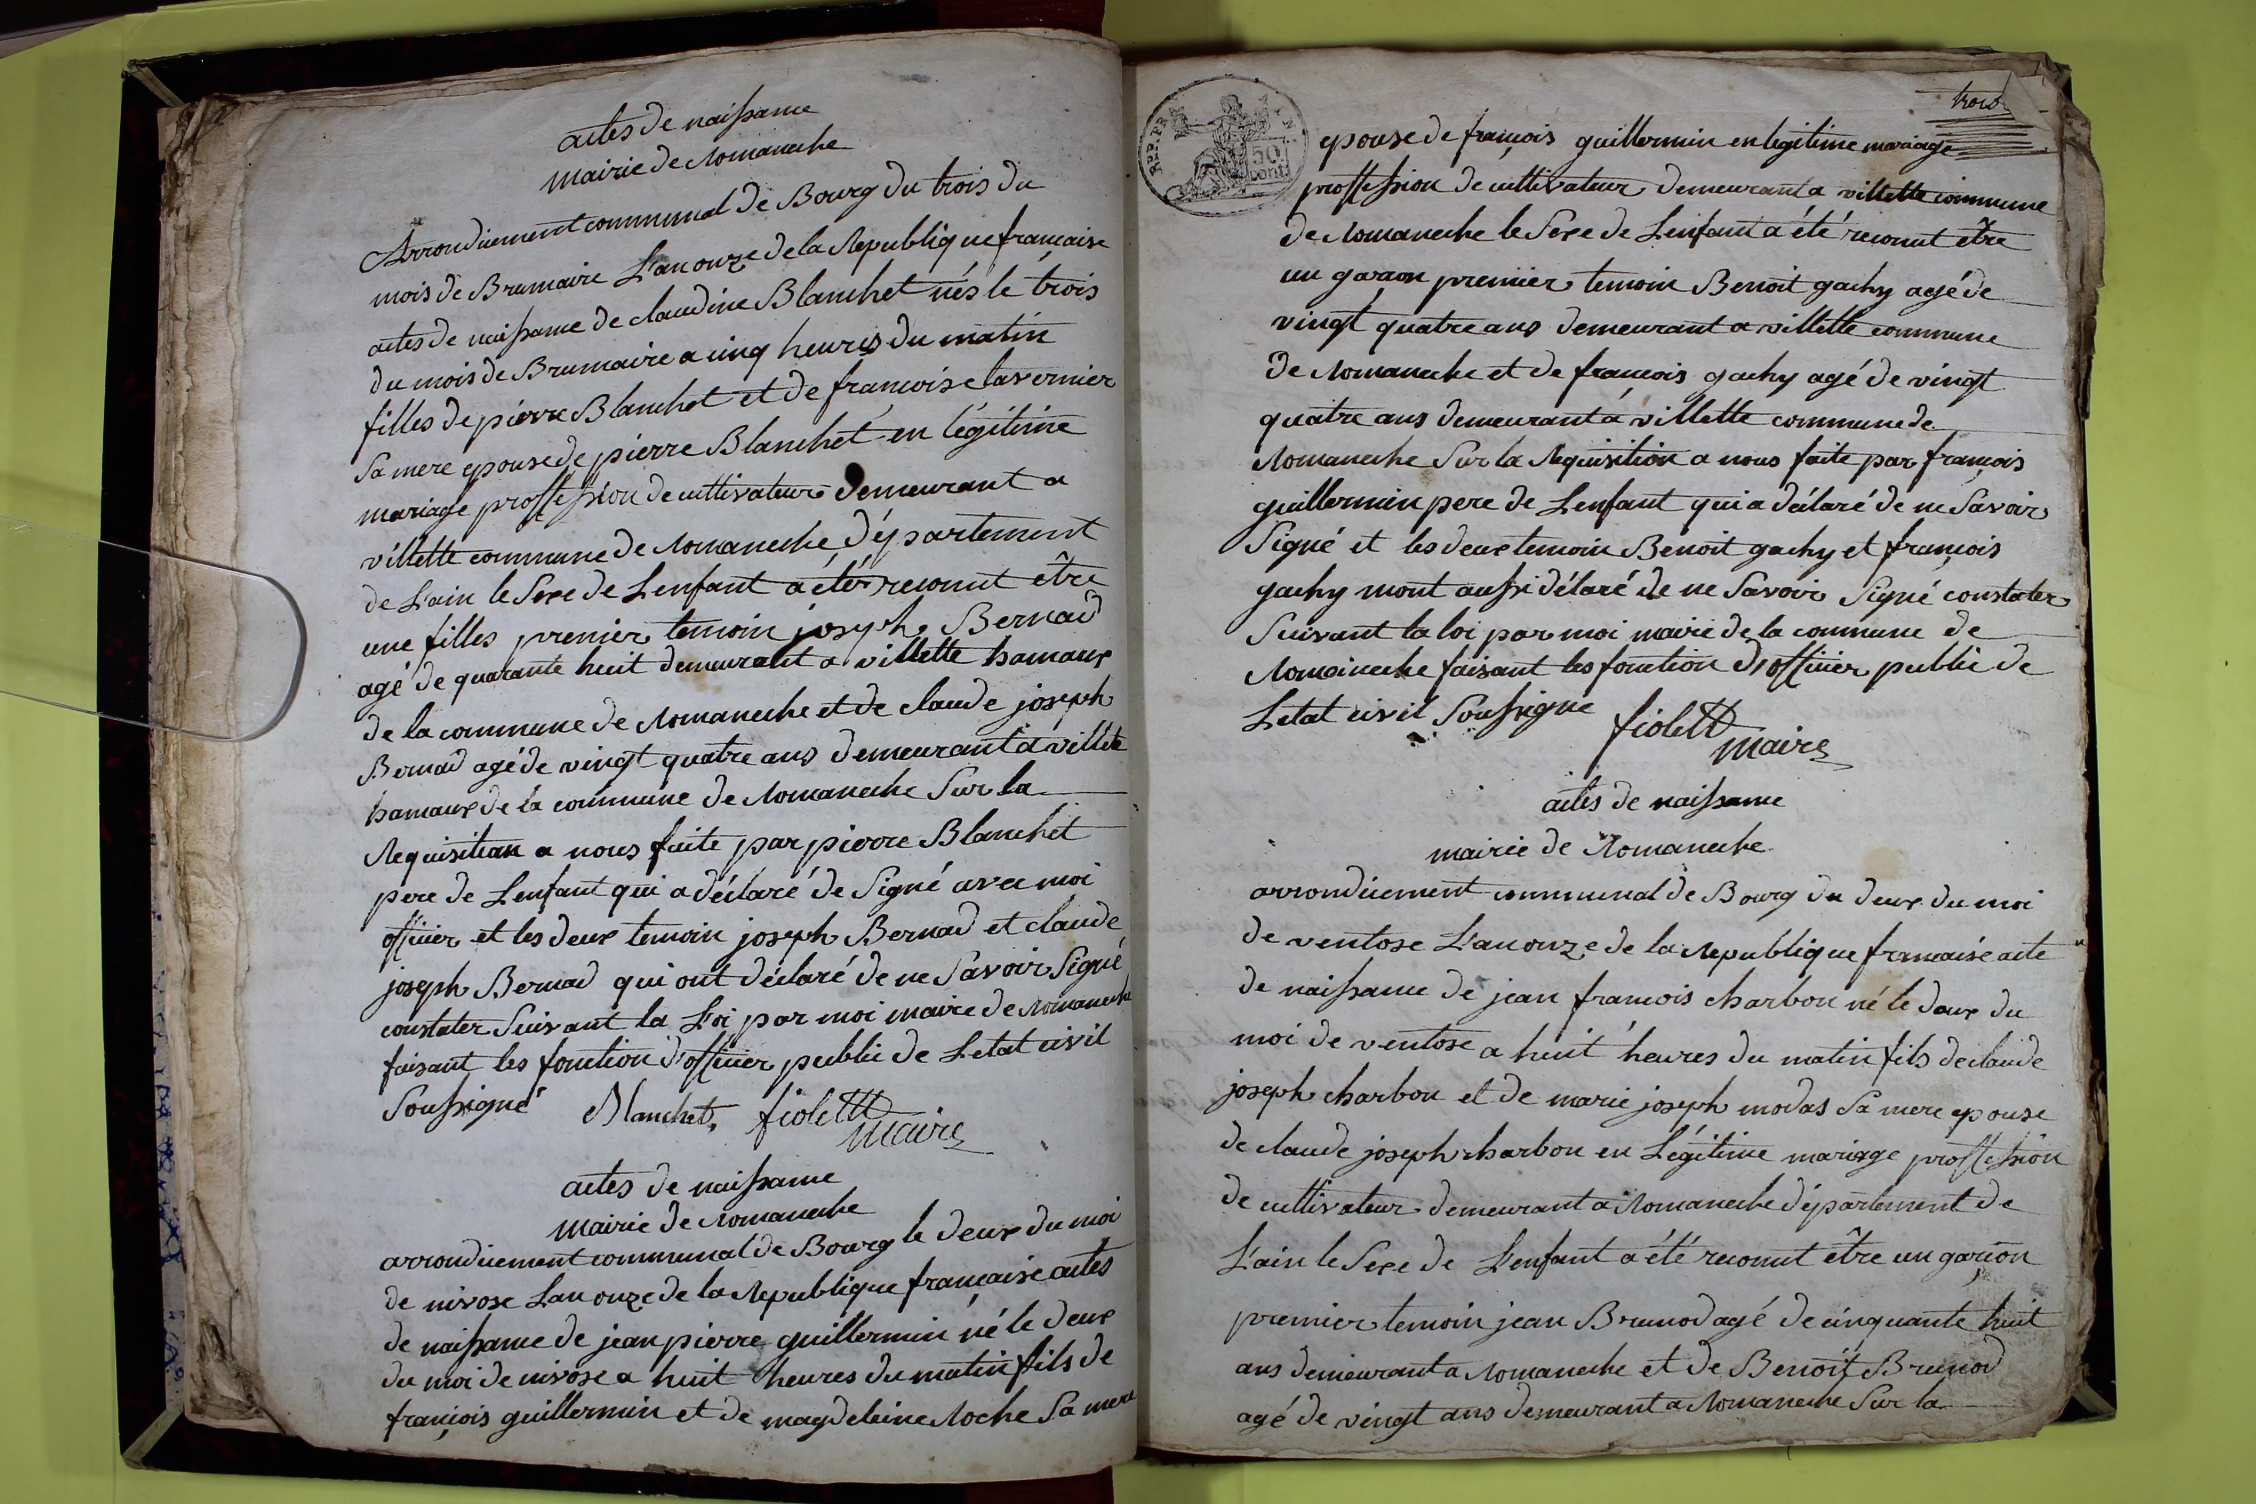 actes de naissance
mairie de Romaneche
Arrondicement communal de Bourg du trois du
mois de Brumaire L'an onze de la Republique francaise
actes de naissance de claudine Blanchet nés le trois
du mois de Brumaire a cinq heures du matin
filles de pierre Blanchet et de francoise lavernier
Sa mere epouse de pierre Blanchet en légitime
mariage proffession de cultivateur demeurant a
villette commune de Romaneche département
de L'ain le Sexe de Lenfant a été reconnut être
une filles premier temoin joseph Bernad
agé de quarante huit demeurant a villette hamaux
de la commune de Romaneche et de claude joseph
Bernad agé de vingt quatre ans demeurant a villete
hamaux de la commune de Romaneche Sur la
Requisition a nous faite par pierre Blanchet
pere de Lenfant qui a déclaré de Signé avec moi
officier et les deux temoin joseph Bernad et claude
joseph Bernad qui ont déclaré de ne Savoir Signé
constater Suivant la Loi par moi maire de Romaneche
faisant les fonction d'officier public de Letat civil
Soussigné Blanchet, fiolett
maire
actes de naissance
mairie de Romaneche
arrondicement communal de Bourg le deux du moi
de nivose Lan onze de la Republique francaise actes
de naissance de jean pierre guillermin né le deux
du moi de nivose a huit heures du matin fils de
françois guillermin et de magdeleine Roche Sa mere
trois
REP. FRA
50
cent
epouse de françois guillermin en legitime mariage
proffession de cultivateur demeurant a villette commune
de Romaneche le Sexe de Lenfant a été reconut être
un garcon premier temoin Benoit gachy agé de
vingt quatre ans demeurant a villette commune
de Romaneche et de francois gachy agé de vingt
quatre ans demeurant a villette commune de
Romaneche Sur la Requisition a nous faite par françois
guillermin pere de Lenfant qui a déclaré de ne Savoir
Signé et les deux temoin Benoit gachy et françois
gachy mont aussi déclaré de ne Savoir Signé constater
Suivant la loi par moi maire de la commune de
Romaineche faisant les fonction d'officier public de
Letat civil Soussigne fiolett
maire
actes de naissance
mairie de Romaneche
arrondicement communal de Bourg du deux du moi
de ventose L'an onze de la Republique francaise acte
de naissance de jean francois charbon né le deux du
moi de ventose a huit heures du matin fils de claude
joseph charbon et de marie joseph modas Sa mere epouse
de claude joseph charbon en Légitime mariage proffession
de cultivateur demeurant a Romaneche département de
L'ain le Sexe de Lenfant a été reconut être un garçon
premier temoin jean Brunod agé de cinquante huit
ans demeurant a Romaneche et de Benoit Brunod
agé de vingt ans demeurant a Romaneche Sur la